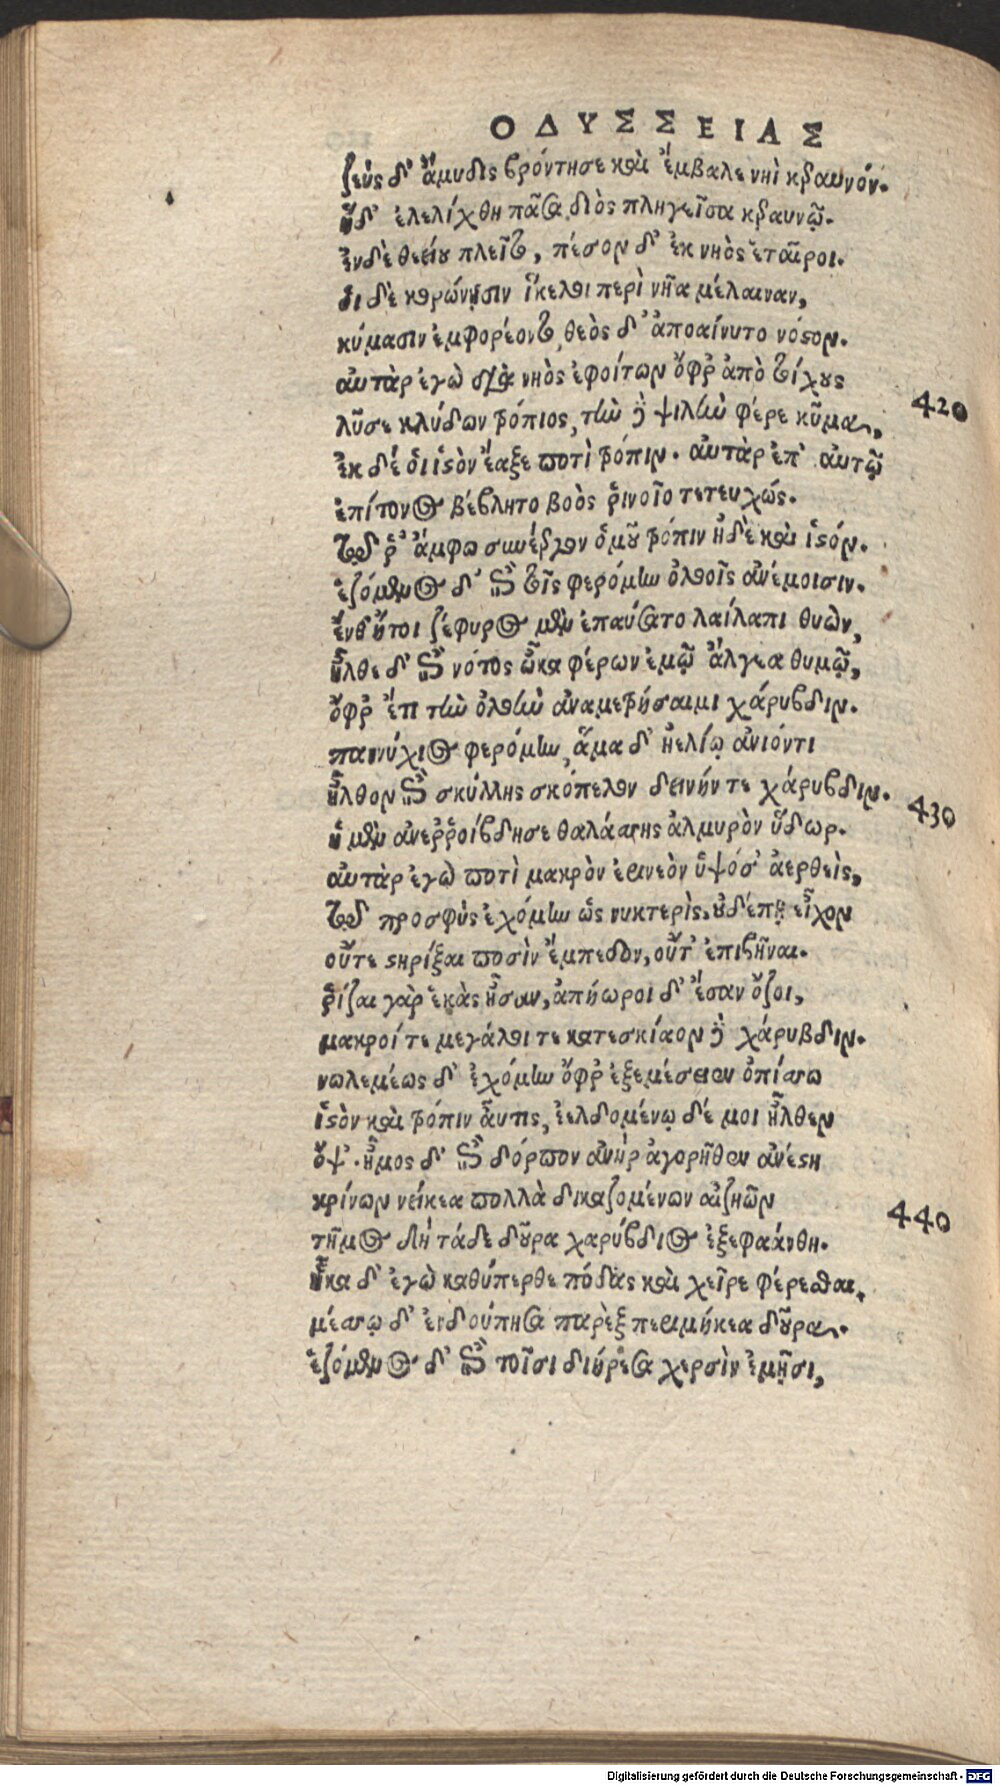 ΟΔΥΣΣΕΙΑΣ
ζεὺς δ' ἄμυδις βρόντησε καὶ ἔμβαλε νηῒ κεραυνόν.
ἡ δ' ἐλελίχθη πᾶσα διὸς πληγεῖσα κεραυνῷ.
ἐν δὲ θεείου πλεῖτο, πέσον δ' ἐκ νηὸς ἑταῖροι.
οἱ δὲ κορώνῃσιν ἴκελοι περὶ νῆα μέλαιναν,
κύμασιν ἐμφορέοντο, θεὸς δ' ἀποαίνυτο νόστον.
αὐτὰρ ἐγὼ διὰ νηὸς ἐφοίτων ὄφρ' ἀπὸ τοίχους
420
λῦσε κλύδων τρόπιος, τὴν δὲ ψιλὴν φέρε κῦμα,
ἐκ δέ οἱ ἱστὸν ἔαξε ποτὶ τρόπιν. αὐτὰρ ἐπ' αὐτῷ
ἐπίτονος βέβλητο βοὸς ῥινοῖο τετευχώς.
τῷ ῥ' ἄμφω συνέεργον ὁμοῦ τρόπιν ἠδὲ καὶ ἱστόν.
ἑζόμενος δ' ἐπὶ τοῖς φερόμην ὀλοοῖς ἀνέμοισιν.
ἔνθ' ἤτοι ζέφυρος μὲν ἐπαύσατο λαίλαπι θυων,
ἦλθε δ' ἐπὶ νότος ὦκα φέρων ἐμῷ ἄλγεα θυμῷ,
ὄφρ' ἔτι τὴν ὀλοὴν ἀναμετρήσαιμι χάρυβδιν.
παννύχιος φερόμην, ἅμα δ' ἠελίῳ ἀνιόντι
ἦλθον ἐπὶ σκύλλης σκόπελον δεινήν τε χάρυβδιν.
430
ἡ μὲν ἀνεῤῥοίβδησε θαλάσσης ἁλμυρὸν ὕδωρ.
αὐτὰρ ἐγὼ ποτὶ μακρὸν ἐρινεὸν ὑψόσ' ἀερθεὶς,
τῷ προσφὺς ἐχόμην ὡς νυκτερὶς. οὐδέ πῃ εἶχον
οὔτε στηρίξαι ποσὶν ἔμπεδον, οὔτ' ἐπιβῆναι.
ῥίζαι γὰρ ἑκὰς ἦσαν, ἀπήωροι δ' ἔσαν ὄζοι,
μακροί τε μεγάλοι τε κατεσκίαον δὲ χάρυβδιν.
νωλεμέως δ' ἐχόμην ὄφρ' ἐξεμέσειεν ὀπίσσω
ἱστὸν καὶ τρόπιν αὖτις, ἐελδομένῳ δέ μοι ἦλθεν
ὄψ'. ἦμος δ' ἐπὶ δόρπον ἀνὴρ ἀγορῆθεν ἀνέστη
κρίνων νείκεα πολλὰ δικαζομένων αἰζηῶν
440
τῆμος δὴ τάδε δοῦρα χαρύβδιος ἐξεφαάνθη.
ἧκα δ' ἐγὼ καθύπερθε πόδας καὶ χεῖρε φέρεσθαι,
μέσσῳ δ' ἐνδούπησα παρὲξ περιμήκεα δοῦρα.
ἑζόμενος δ' ἐπὶ τοῖσι διήρεσα χερσὶν ἐμῇσι,
Digitalisierung gefördert durch die Deutsche Forschungsgemeinschaft - DFG